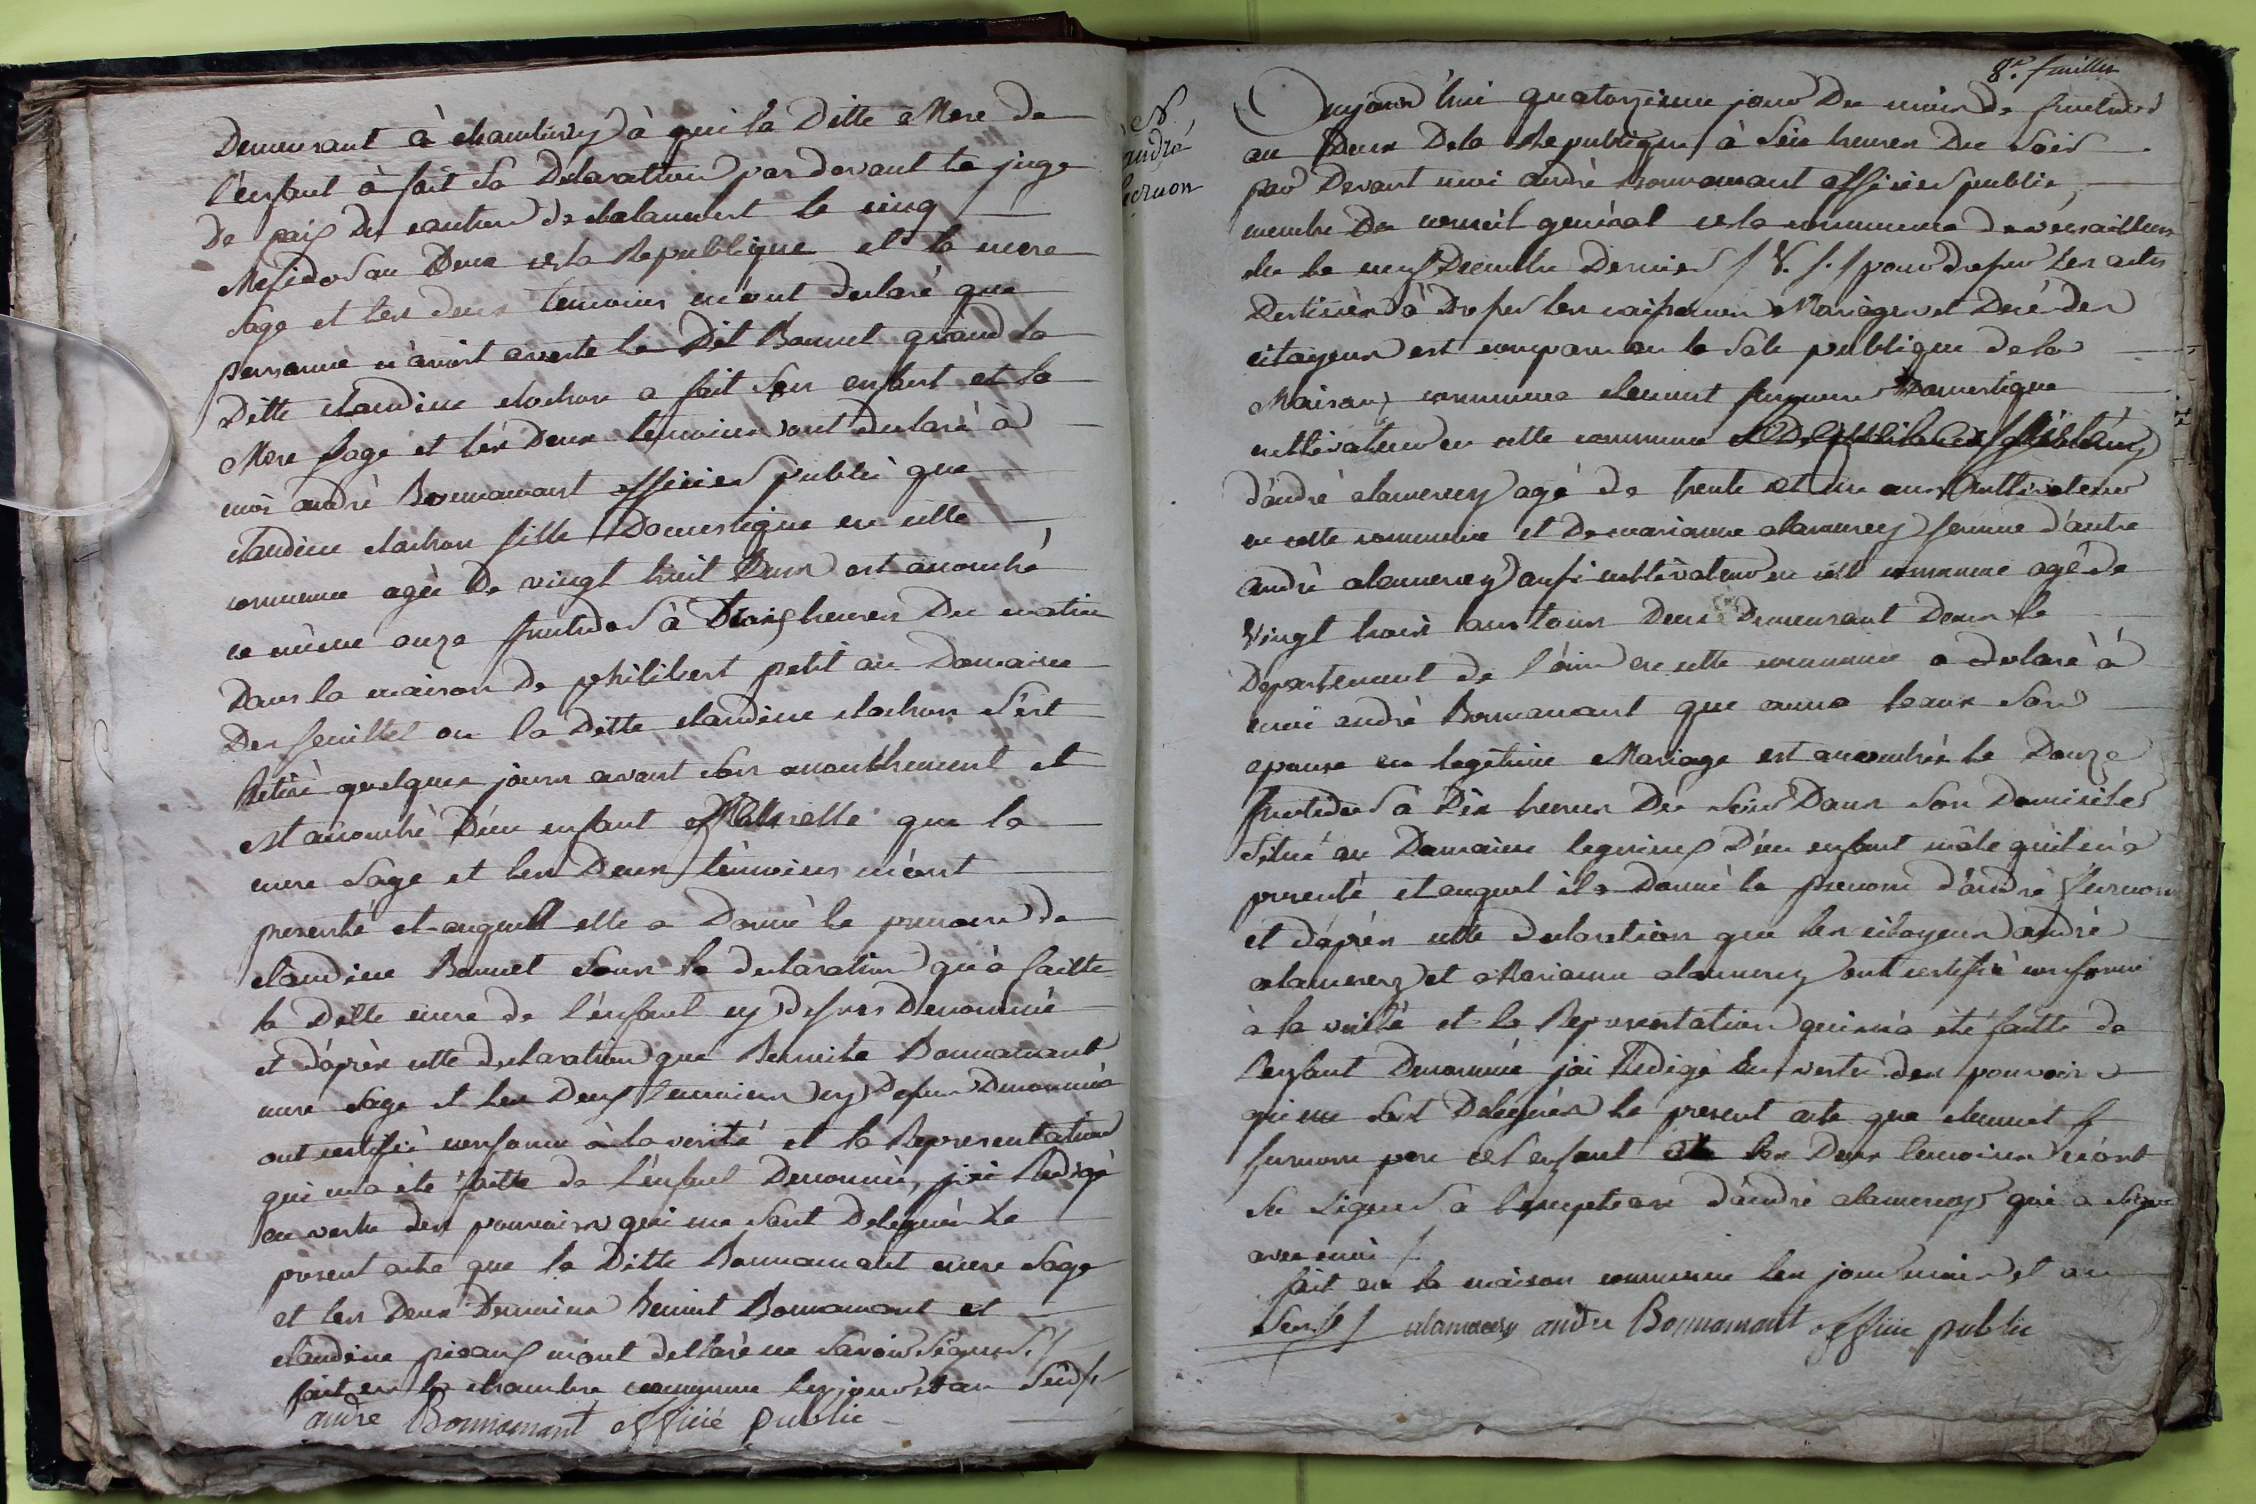 Demeurant à chantivry à qui la Ditte Mere de
l'enfant à fait sa Declaration pardevant le juge
de paix du canton de chalamont le cinq
Mesidor au Deux de la Republique et la mere
sage et les deux temoins m'ont declaré que
personne n'avoit averte le Dit Bonnet quand la
Ditte claudine clochon a fait son enfant et la
Mere sage et les Deux temoins ont declaré à
moi andré Bonnamant officier public que
claudine clochon fille Domestique en cette
commune agée de vingt huit ans est acouché
ce même onze fructidor à trois heures Du matin
Dans la maison de philibert petit au Domaine
Des feuilles ou la Ditte claudine clochon s'est
Retiré quelques jours avant son acouchement et
est acouché D'un enfant femelle que la
mere sage et les Deux temoins m'ont
presenté et auquell elle a Donné le prenom de
claudine Bonnet sour la declaration qu'a faitte
la Ditte mere de l'enfant cy desus Denommé
et d'après cette declaration que Benoite Bonnamant
mere sage et les Deux temoins cy Desus Denommés
ont certifié conforme à la verité et la Representation
qui m'a été faitte de l'enfant Denommé, j'ai Redigé
en vertu des pouvoirs qui me sont Delegués le
present acte que la Ditte Bonnamant mere sage
et les Deux temoins Benoit Bonnamant et
claudine m'ont dellaré ne savoir signer ./.
fait en la chambre commune les jour et an susd./.
andre Bonnamant officié public
8.e feuillet
N
andré
furnon
Aujourd'hui quatorzieme jour Du mois de fructidor
an Deux De la Republique à six heures Du soir
par Devant moi andré Bonnamant officier public
membre Du conseil general de la commune de versailleux
élu le neuf Decembre Dernier / V. s. / pour dreser les actes
Destinés à Dreser les naisances Mariages et Decé des
citoyens est comparu en la sale publique de la
Maison commune clement furnon Domestique
cultivateur en cette commune
d'andré alamercery agé de trente et un ans cultivateur
en cette commune et De marianne alamercery femme d'autre
andré alamercery ausi cultivateur en cette commune agé de
vingt trois ans tous Deux Demeurant Dans le
Departement de l'ain en cette commune a declaré à
moi andré Bonnamant que anne beaux son
epouse en legitime Mariage est acouchée le Douze
fructidor à Dix heures Du soir Dans son Domicile
situé au Domaine D'un enfant mâle qu'il m'a
presenté et auquel il a Donné le prenom d'andré furnon
et d'après cette declaration que les citoyens andré
alamercery et Marianne alamercery ont certifié conforme
à la verité et la Representation qui m'a été faitte de
l'enfant Denommé j'ai Redigé En vertu des pouvoirs
qui me sont Delegués le present acte que clement
furnon pere de l'enfant et les Deux temoins n'ont
su signer à l'exception d'andré alamercery qui a signé
avec moi /.
fait en la maison commune les jour mois et an
susd. / alamercery andre Bonnamant officié public